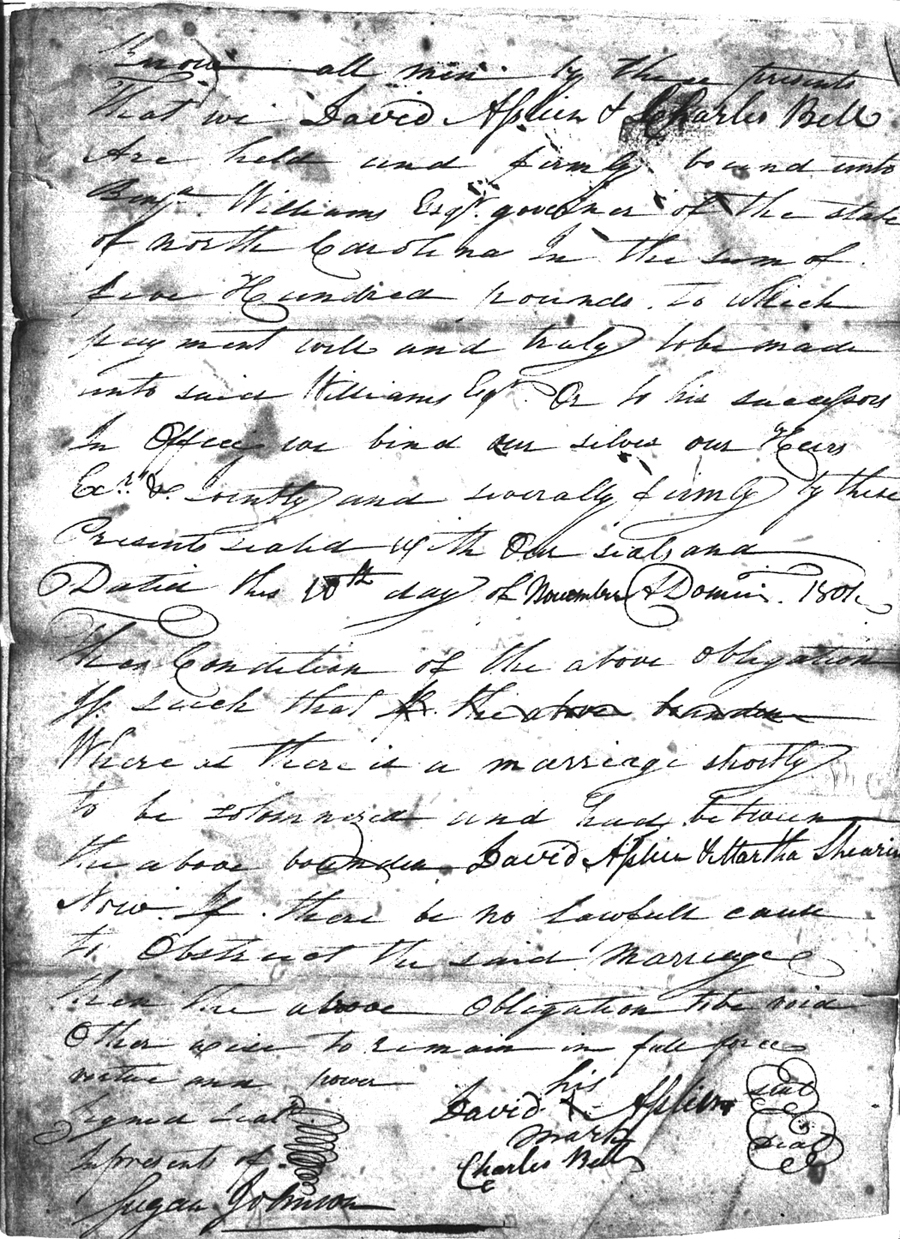 Know all men by these presents
That we David Asplien & Charles Bell
Are held and firmly bound unto
Benjn. Williams Esqr. governer of the state
of North Carolina In the sum of
five Hundred pounds to which
payment well and truly to be made
unto said Williams Esqr. Or to his successors
In Office we bind our selves our Heirs
Exrs. &c. Jointly and severaly firmly by these
Presents sealed with Our seals and
Dated this 10th day of November A Domini. 1801
The Condition of the above obligation
Is such that if the above bounden
Where as there is a marriage shortly
to be solomnized and had between
the above bounden David Asplien & Martha Shearin
Now If there be no lawfull cause
to Obstruct the said Marriage
then the above Obligation to be void
Other wise to remain in full force
virtue and power
his
David X Asplien seal
mark
Signed Seald
In presents of
Charles Bell seal
Johnson